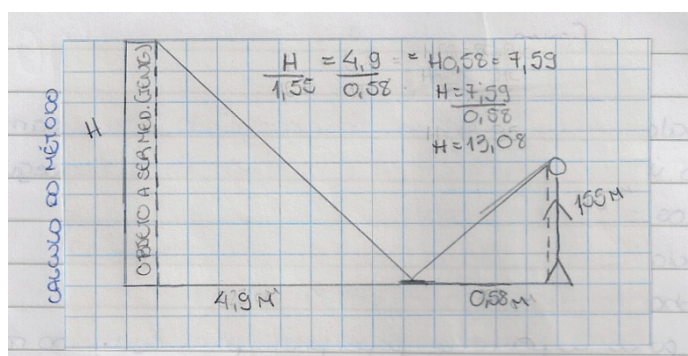 CALCULO DO MÉTODO
H
OBJETO A SER MED.
H/1,55 = 4,9/0,58 = H0,58 = 7,59
H=7,59/0,58
H=13,08
155 M
4,9 M
0,58 M